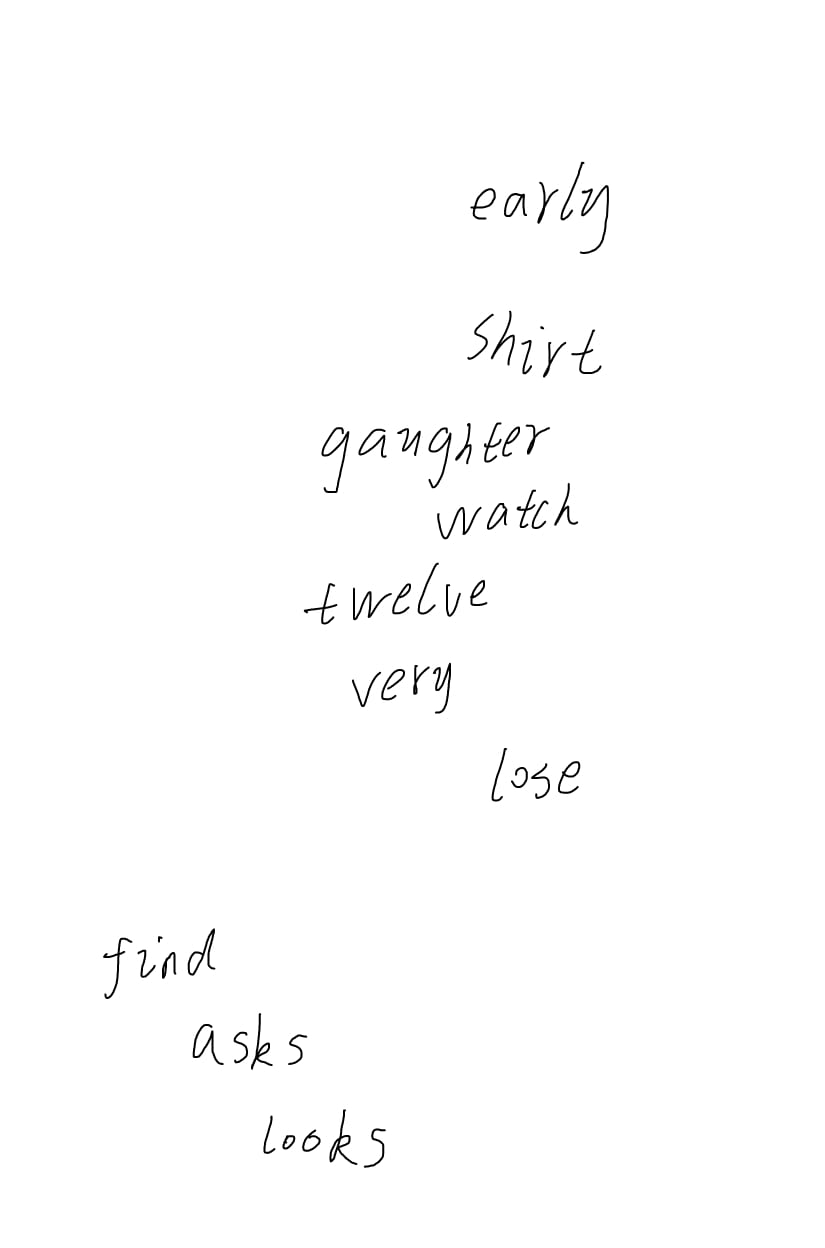 early
shirt
gaughter
watch
twelve
very
lose
find
asks
looks